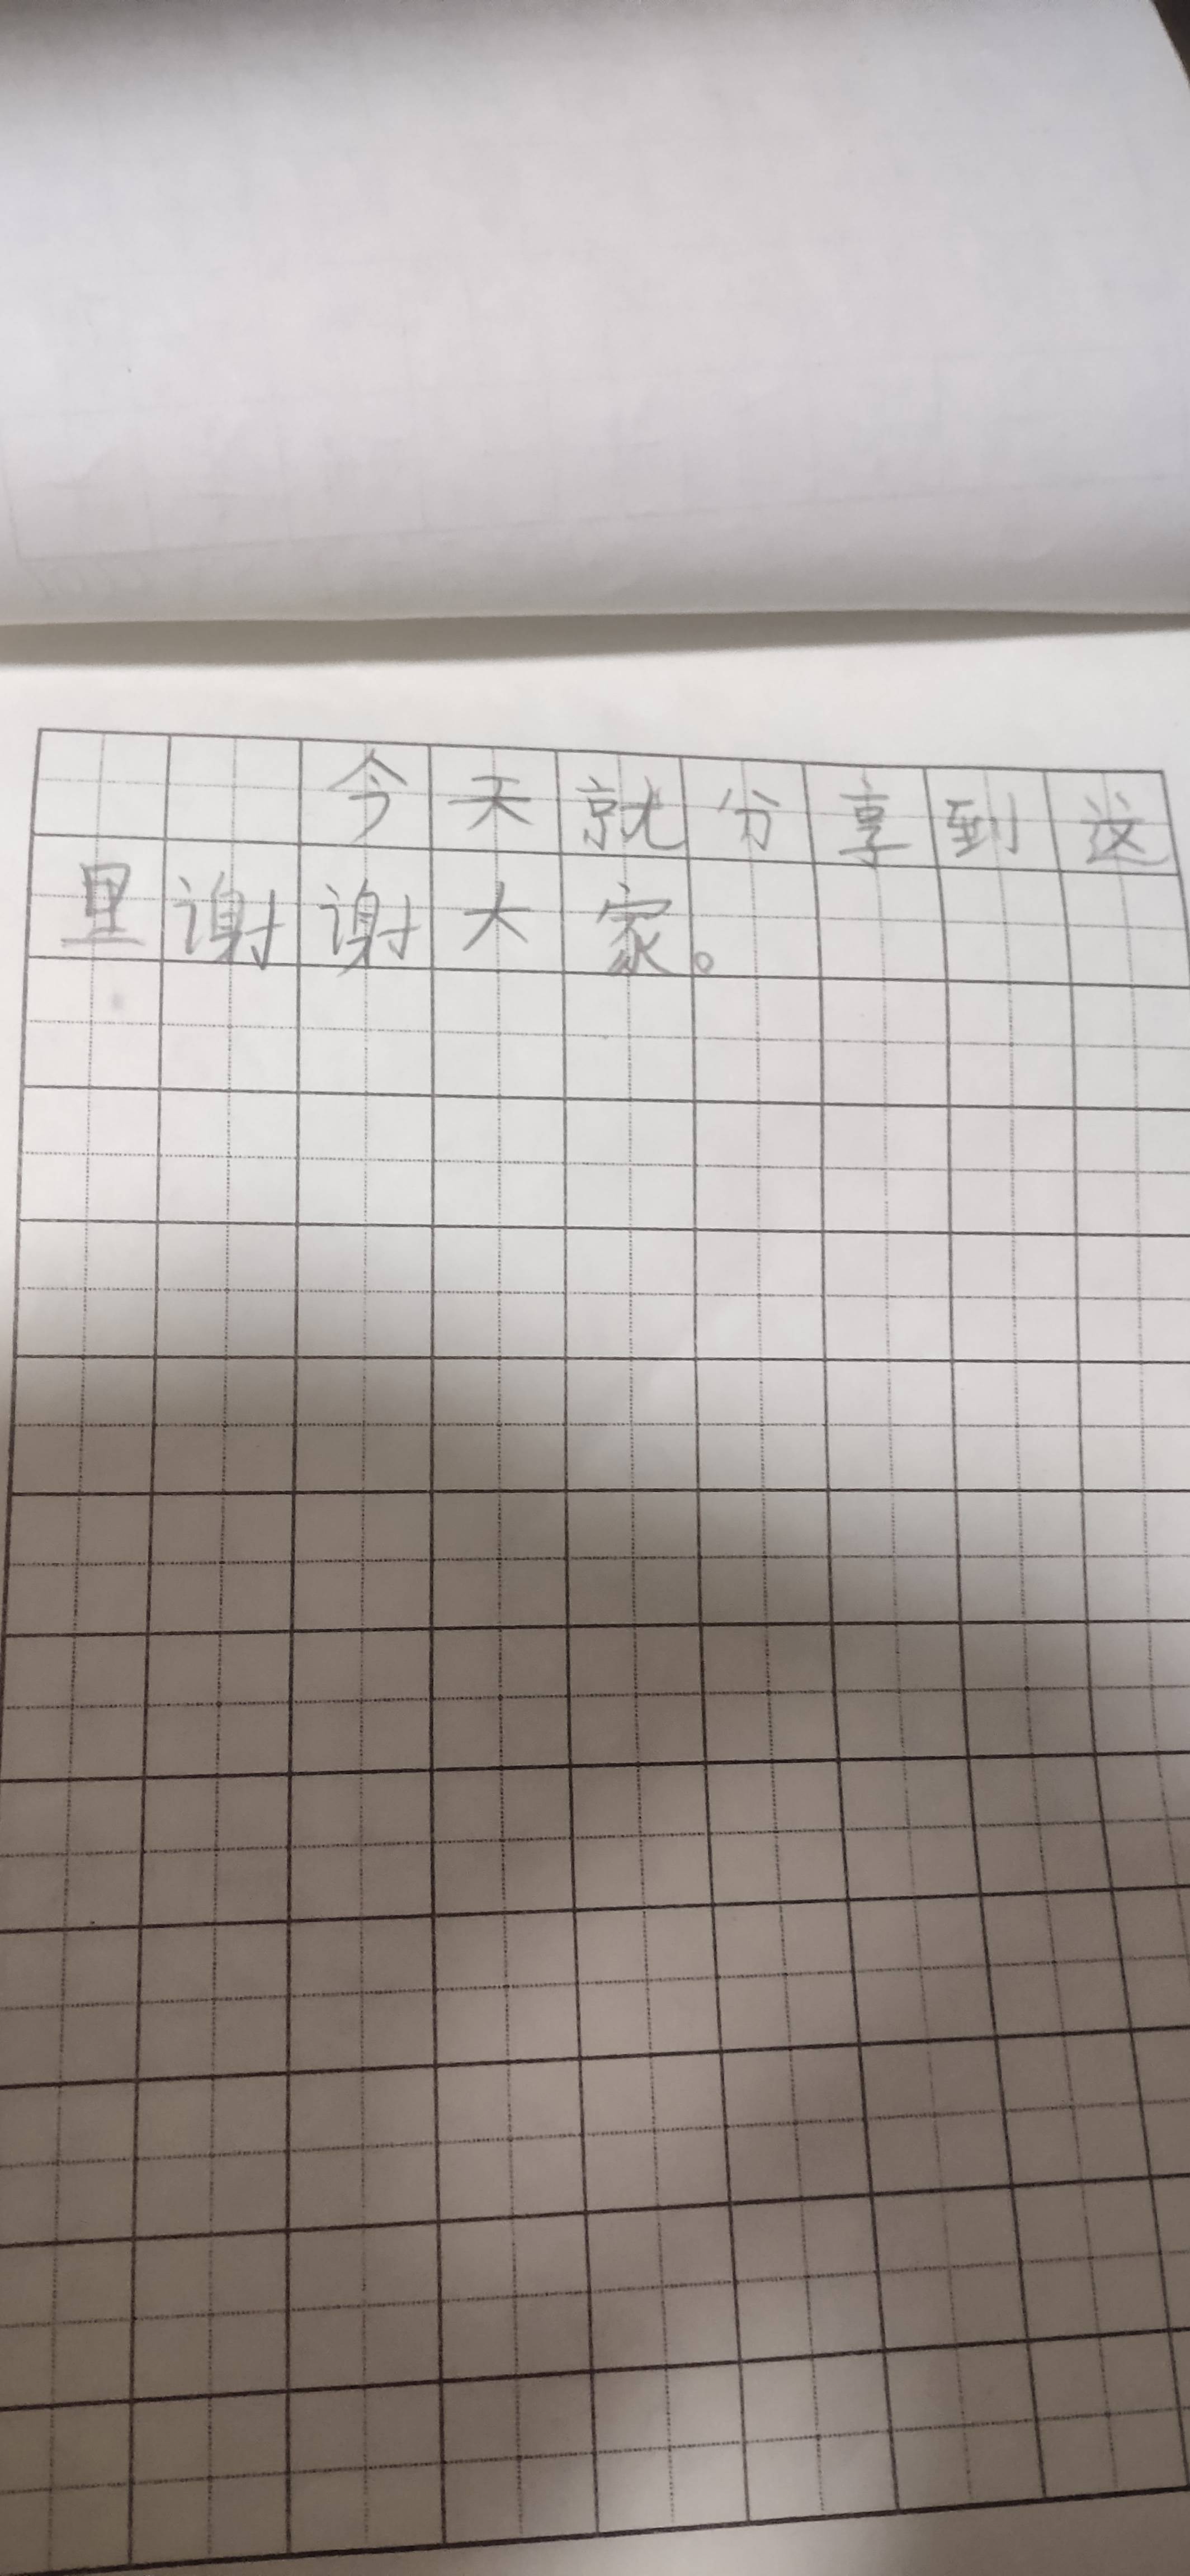 今天就分享到这
里谢谢大家。